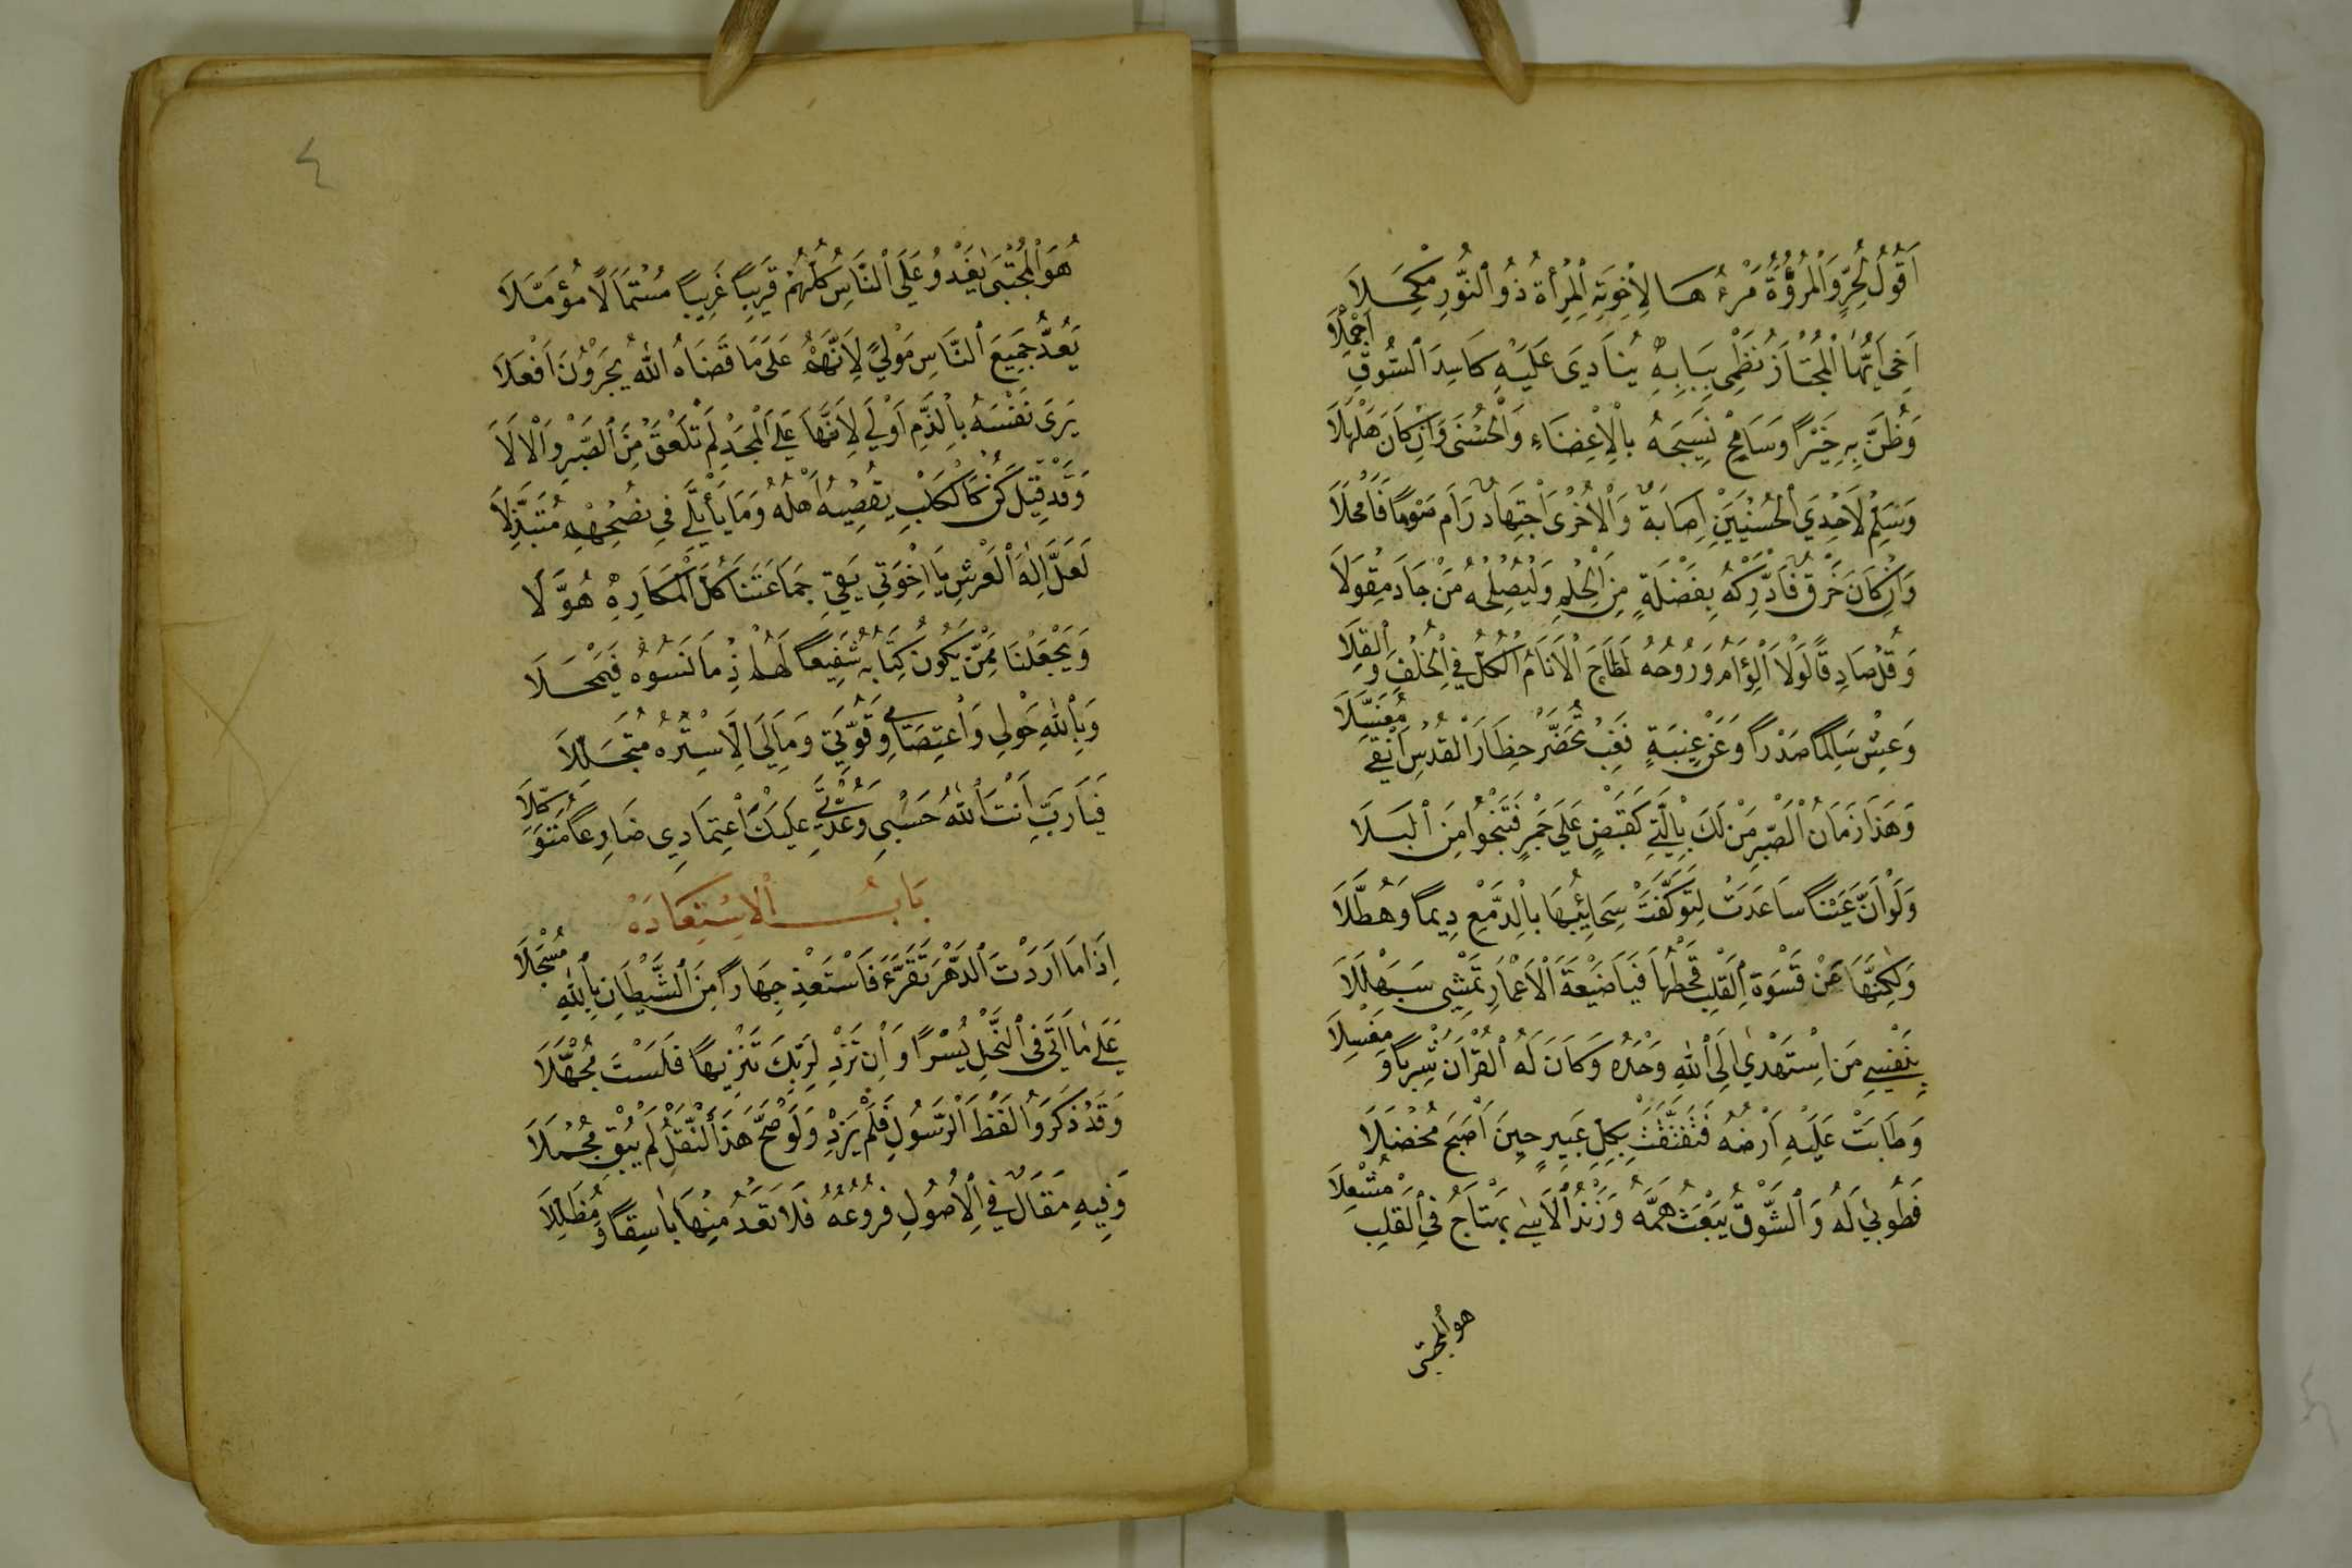 اَقُولُ لِحُرٍّ وَالْمُرُوَّةُ مَرْءُهَا لِاِخْوَتِهِ الْمِرْأَةُ ذُو النُّورِ مِكْحَلَا
اَخِي اَيُّهَا الْمُجْتَازُ نَظْمِي بِبَابِهِ يُنَادَى عَلَيْهِ كَاسِدَ السُّوقِ اَجْمِلَا
وَظُنَّ بِهِ خَيْرًا وَسَامِحْ نَسِيجَهُ بِالْاِغْضَاءِ وَالْحُسْنَى وَاِنْ كَانَ هَلْهَلَا
وَسَلِّمْ لِاَحْدَي الْحُسْنَيَيْنِ اِصَابَةٌ وَالْاُخْرَى اجْتِهَادٌ رَامَ صَوْبًا فَاَمْحَلَا
وَاِنْ كَانَ خَرْقٌ فَادَّرِكْهُ بِفَضْلَةٍ مِنَ الْحِلْمِ وَلْيُصْلِحْهُ مَنْ جَادَ مِقْوَلَا
وَقُلْ صَادِقًا لَوْلَا الْوِئَامُ وَرُوحُهُ لَطَاحَ الْاَنَامُ الْكُلُّ فِي الْخُلْفِ وَالْقِلَا
وَعِشْ سَالِمًا صَدْرًا وَعَنْ غِيبَةٍ فَغِبْ تُحَضَّرْ حِظَارَ الْقُدْسِ اَنْقَى مُغَسَّلَا
وَهَذَا زَمَانُ الصَّبْرِ مَنْ لَكَ بِالَّتِي كَقَبْضٍ عَلَي جَمْرٍ فَتَنْجُوا مِنَ الْبَلَا
وَلَوْ اَنَّ عَيْنًا سَاعَدَتْ لِتَوَكَّفَتْ سَحَائِبُهَا بِالدَّمْعِ دِيمًا وَهُطَّلَا
وَلٰكِنَّهَا عَنْ قَسْوَةِ الْقَلْبِ قَحْطُهَا فَيَا ضَيْعَةَ الْاَعْمَارِ تَمْشِي سَبَهْلَلَا
بِنَفْسِي مَنِ اسْتَهْدٰي اِلَى اللّٰهِ وَحْدَهُ وَكَانَ لَهُ الْقُرْاٰنُ شِرْبًا وَمَغْسِلَا
وَطَابَتْ عَلَيْهِ اَرْضُهُ فَتَفَتَّقَتْ بِكُلِّ عَبِيرٍ حِينَ اَصْبَحَ مُخْضَلَا
فَطُوبٰي لَهُ وَالشَّوْقُ يَبْعَثُ هَمَّهُ وَزَنْدُ الْاَسٰي يَهْتَاجُ فِي الْقَلْبِ مُشْعِلَا
هو المجتبى
٤
هُوَ الْمُجْتَبَى يَغْدُو عَلَي النَّاسِ كُلِّهُمْ قَرِيبًا غَرِيبًا مُسْتَمَالًا مُؤَمَّلَا
يَعُدُّ جَمِيعَ النَّاسِ مَوْلًي لِاَنَّهُمْ عَلَى مَا قَضَاهُ اللّٰهُ يُجْرَوْنَ اَفْعَلَا
يَرَى نَفْسَهُ بِالذَّمِّ اَوْلَي لِاَنَّهَا عَلَي الْمَجْدِ لَمْ تَلْعَقْ مِنَ الصَّبْرِ وَالْاَلَا
وَقَدْ قِيلَ كُنْ كَالْكَلْبِ يُقْصِيهِ اَهْلُهُ وَمَا يَأْتَلِي فِي نُصْحِهِمْ مُتَبَذِّلَا
لَعَلَّ اِلٰهَ الْعَرْشِ يَا اِخْوَتِي يَقِي جَمَاعَتَنَا كُلَّ الْمَكَارِهِ هُوَّلَا
وَيَجْعَلُنَا مِمَّنْ يَكُونُ كِتَابُهُ شَفِيعًا لَهُمْ اِذْ مَا نَسُوهُ فَيَمْحَلَا
وَبِاللّٰهِ حَوْلِي وَاعْتِصَامِي وَقُوَّتِي وَمَا لِي اِلَّا سِتْرُهُ مُتَجَلِّلَا
فَيَا رَبِّ اَنْتَ اللّٰهُ حَسْبِي وَعُدَّتِي عَلَيْكَ اعْتِمَادِي ضَارِعًا مُتَوَكِّلَا
بَابُ الْاِسْتِعَاذَهْ
اِذَا مَا اَرَدْتَ الدَّهْرَ تَقْرَءُ فَاسْتَعِذْ جِهَارًا مِنَ الشَّيْطَانِ بِاللّٰهِ مُسْجَلَا
عَلٰى مَا اَتَى فِي النَّحْلِ يُسْرًا وَاِنْ تَزِدْ لِرَبِّكَ تَنْزِيهًا فَلَسْتَ مُجَهَّلَا
وَقَدْ ذَكَرُوا لَفْظَ الرَّسُولِ فَلَمْ يَزِدْ وَلَوْ صَحَّ هَذَا النَّقْلُ لَمْ يُبْقِ مُجْمَلَا
وَفِيهِ مَقَالٌ فِي الْاُصُولِ فُرُوعُهُ فَلَا تَعْدُ مِنْهَا بَاسِقًا وَمُظَلِّلَا